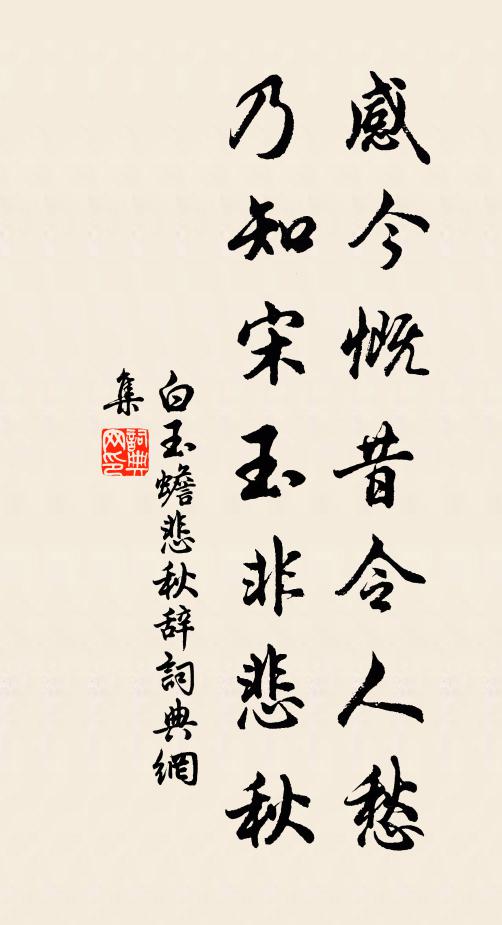 感今慨昔令人愁
乃知宋玉非悲秋
白玉蟾悲秋辞詞典網
集
詞典网印